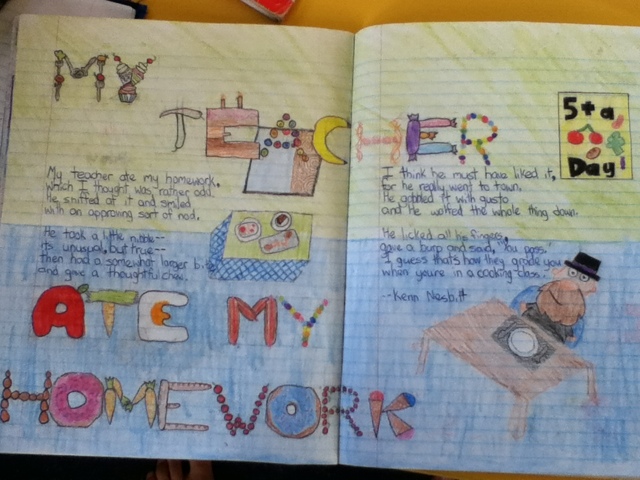 MY
TEACHER
My teacher ate my homework,
which I thought was rather odd.
He sniffed at it and smiled
with an approving sort of nod.
He took a little nibble--
its unusual, but true--
then had a somewhat larger bite
and gave a thoughtful chew.
ATE MY
HOMEWORK
5+ a
Day!
I think he must have liked it,
for he really went to town.
He gobled it with gusto
and he wolfed the whole thing down.
He licked all his fingers,
gave a burp and said, "You pass."
I guess that's how they grade you
when youre in a cooking class.
--Kenn Nesbitt